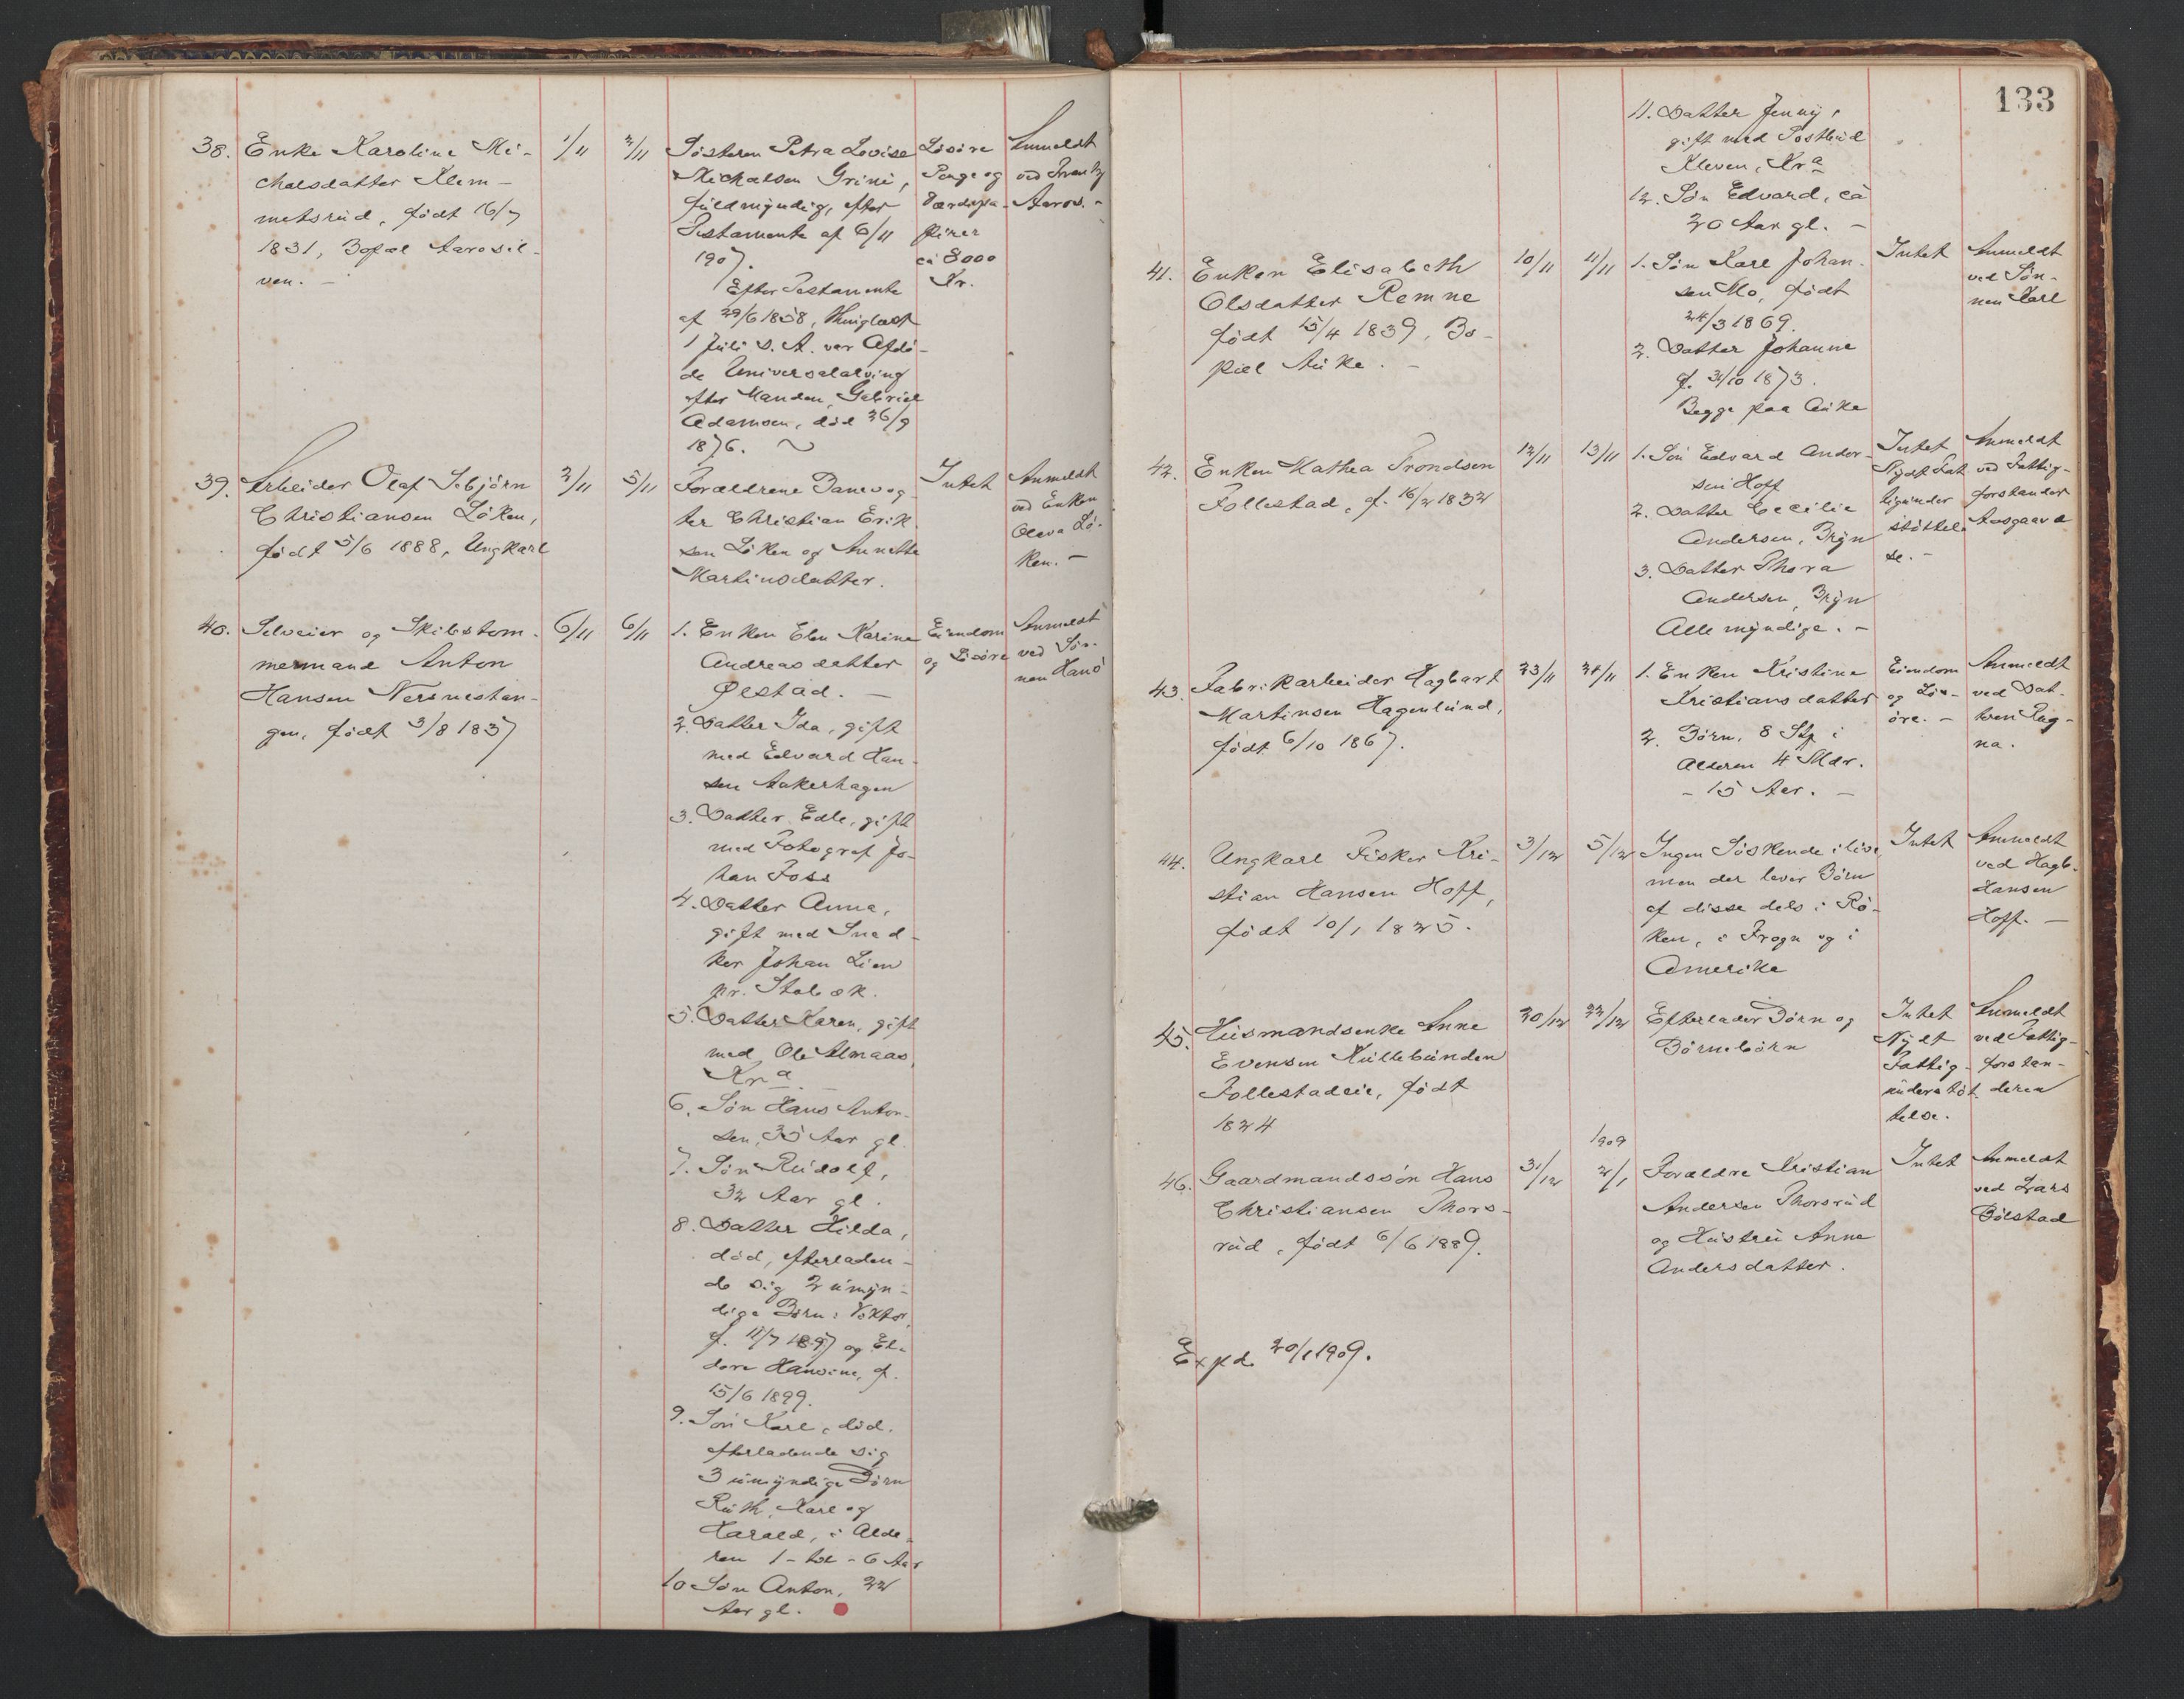 38. Enke Karoline Mi-
chalsdatter Klem-
metsrud, født 16/7
1831, Bopæl Aarosil-
ven. -
1/11
3/11
Søsteren Petra Lovise
Michalsen Grini,
fuldmyndig, efter
Testamente af 6/11
1907.
Efter Testamente
af 29/6 1858, thinglæst
1 Juli s. A. var Afdø-
de Universalarving
efter Manden, Gabriel
Adamsen, død 26/9
1876.
Løsøre
Penge og
Værdipa-
pirer
ca 8000
Kr.
Anmeldt
ved
Aaros. -
39. Arbeider Olaf Asbjørn
Christiansen Løken,
født 5/6 1888, Ungkarl
2/11
5/11
Forældrene Banevog-
ter Christian Erik-
sen Løken og Anette
Martinsdatter.
Intet
Anmeldt
ved Enken
Oleva Lø-
ken. -
40. Selveier og Skibstøm-
mermand Anton
Hansen Nersnestan-
gen, født 3/8 1837
6/11
6/11
1. Enken Elen Karine
Andreasdatter
Ølstad. -
2. Datter Ida, gift
med Edvard Han-
sen Aakerhagen
3. Datter Edle, gift
med Fotograf Jo-
han Foss
4. Datter Anna,
gift med Sned-
ker Johan Lien
pr. Stabæk.
5. Datter Karen, gift
med Ole Almaas,
Kra
6. Søn Hans Anton-
sen, 35 Aar gl.
7. Søn Rudolf,
32 Aar gl.
8. Datter Hilda,
død, efterladen-
de sig 2 umyn-
dige Børn: Viktor,
f. 11/7 1897 og
Hansine, f.
15/6 1899.
9. Søn Karl, død,
efterladende sig
3 umyndige Børn
Ruth, Karl og
Harald, i Alde-
ren 1 - til - 6 Aar
10 Søn Anton, 22
Aar gl.
Eiendom
og Løsøre
Anmeldt
ved Søn-
nen Hans
133
11. Datter Jenny,
gift med Postbud
Kleven, Kra
12. Søn Edvard, ca
20 Aar gl. -
41. Enken Elisabeth
Olsdatter Remne
født 15/4 1839, Bo-
pæl Auke. -
10/11
11/11
1. Søn Karl Johan-
sen Mo, født
24/3 1869.
2. Datter Johanne
f. 31/10 1873.
Begge paa Auke
Intet
Anmeldt
ved Søn-
nen Karl
42. Enken Mathea Trondsen
Follestad, f. 16/2 1832
12/11
13/11
1. Søn Edvard Ander-
sen Hoff
2. Datter Cecilie
Andersen, Bryn
3. Datter Thora
Andersen, Bryn
Alle myndige. -
Intet
Nydt Fat
tigunder
støttel
se. -
Anmeldt
ved Fattig-
forstander
Aasgaard
43. Fabrikarbeider Hagbart
Martinsen Hagenlund,
født 6/10 1867.
23/11
24/11
1. Enken Kristine
Kristiansdatter
2. Børn, 8 Stk i
Alderen 4 Mdr.
- 15 Aar. -
Eiendom
og Løs-
øre. -
Anmeldt
ved Dat-
teren Rag-
na.
44. Ungkarl Fisker Kri-
stian Hansen Hoff,
født 10/1 1825.
3/12
5/12
Ingen Søskende ilive,
men der lever Børn
af disse dels i Rø-
ken, i Frogn og i
Amerika
Intet
Anmeldt
ved Hagb.
Hansen
Hoff. -
45. Husmandsenke Anne
Evensen Kullebunden
Follestadeie, født
1824
20/12
22/12
Efterlader Børn og
Børnebørn
Intet
Nydt
Fattig-
understøt
telse.
Anmeldt
ved Fattig-
forstan-
deren
46. Gaardmandssøn Hans
Christiansen Thors-
rud, født 6/6 1889.
31/12
1909
2/1
Forældre Kristian
Andersen Thorsrud
og Hustru Anne
Andersdatter.
Intet
Anmeldt
ved Lars
Bølstad
Expd. 20/1 1909.